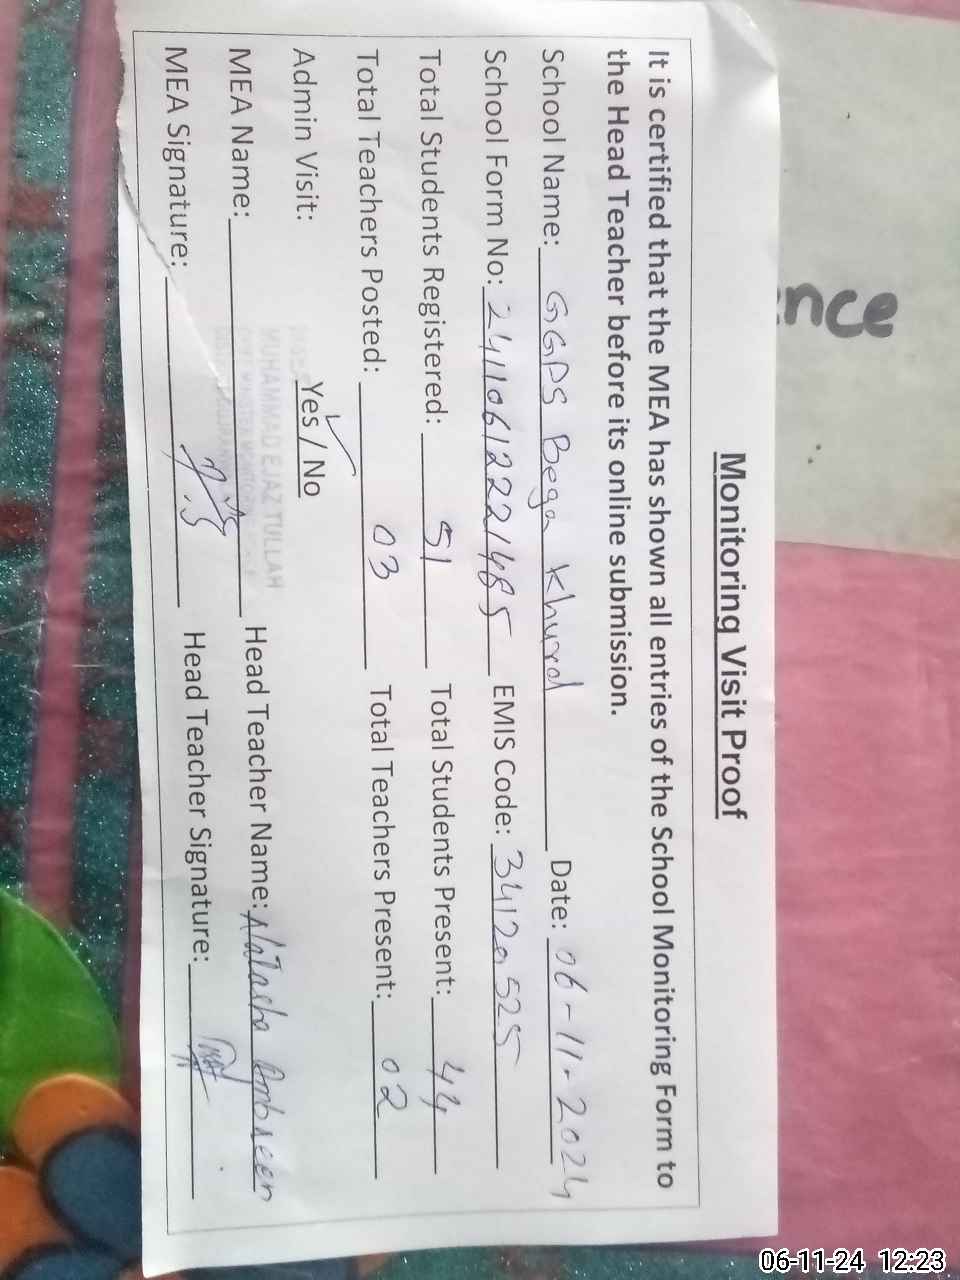 nce
Monitoring Visit Proof
It is certified that the MEA has shown all entries of the School Monitoring Form to
the Head Teacher before its online submission.
School Name: GGPS Bega Khurd Date: 06-11-2024
School Form No: 24110612221485 EMIS Code: 34120525
Total Students Registered: 51 Total Students Present: 44
Total Teachers Posted: 03 Total Teachers Present: 02
Admin Visit: Yes / No
MUHAMMAD EJAZ TULLAH
MEA Name: Head Teacher Name: Natasha Ambreen
MEA Signature: Head Teacher Signature:
06-11-24 12:23